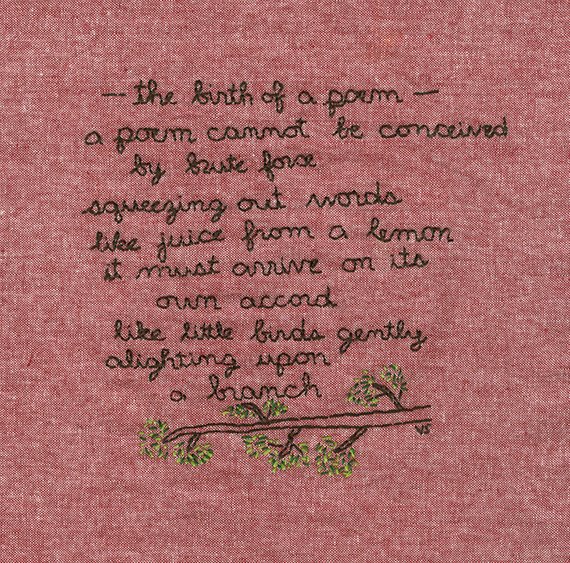 — the birth of a poem —
a poem cannot be conceived
by brute force
squeezing out words
like juice from a lemon
it must arrive on its
own accord
like little birds gently
alighting upon
a branch
VS